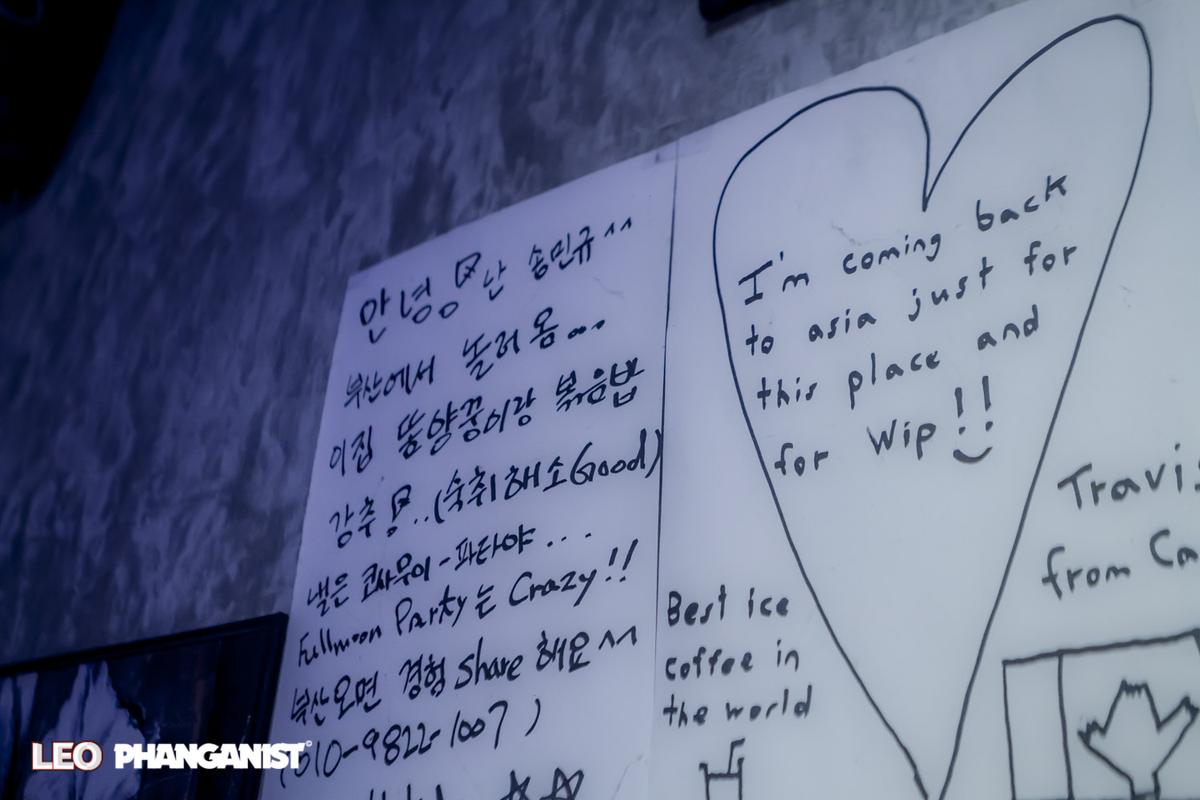 안녕 난 송민규^^
부산에서 놀러옴...
이집 똥양꿍이랑 볶음밥
강추!..(숙취해소Good)
낼은 코사무이-파타야...
Fullmoon Party는 Crazy!!
부산오면 경험 Share 해요^^
(010-9822-1007)
I'm coming back
to asia just for
this place and
for Wip!!
Travis
from Ca
Best ice
coffee in
the world
LEO PHANGANIST